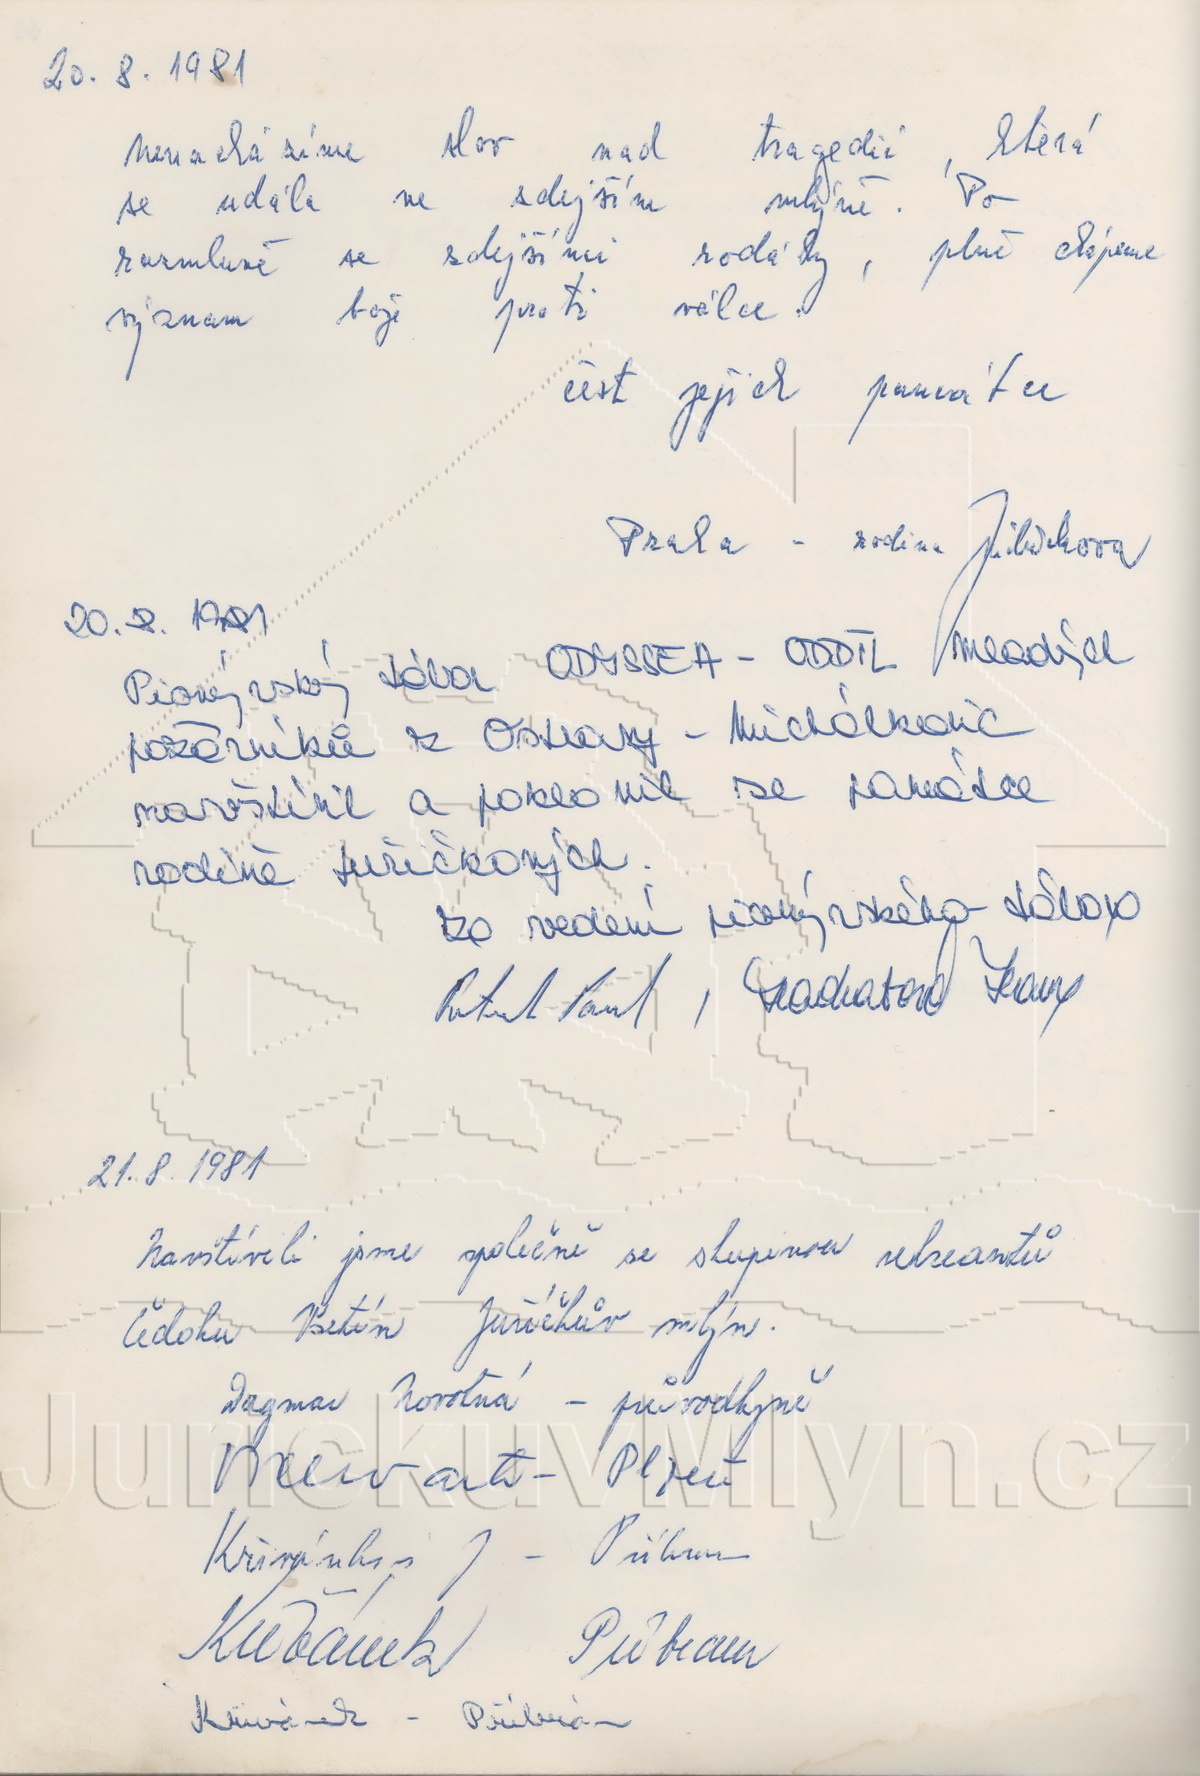 20. 8. 1981
Nenacházíme slov nad tragedií, která
se udála ve zdejším mlýně. Po
rozmluvě se zdejšími rodáky, plně chápeme
význam boje proti válce.
čest jejich památce
Praha - rodina
20. 8. 1981
Pionýrský tábor ODYSSEA - ODDÍL mladých
požárníků z Ostravy - Michálkovic
navštívil a poklonil se památce
rodině Juříčkových.
za vedení pionýrského tábora
21. 8. 1981
Navštívili jsme společně se skupinou rekreantů
Čedoku Vsetín Juříčkův mlýn.
Dagmar Novotná - průvodkyně
- Plzeň
J - Příbram
Křivánek Příbram
Křivánek - Příbram
JurickuvMlyn.cz